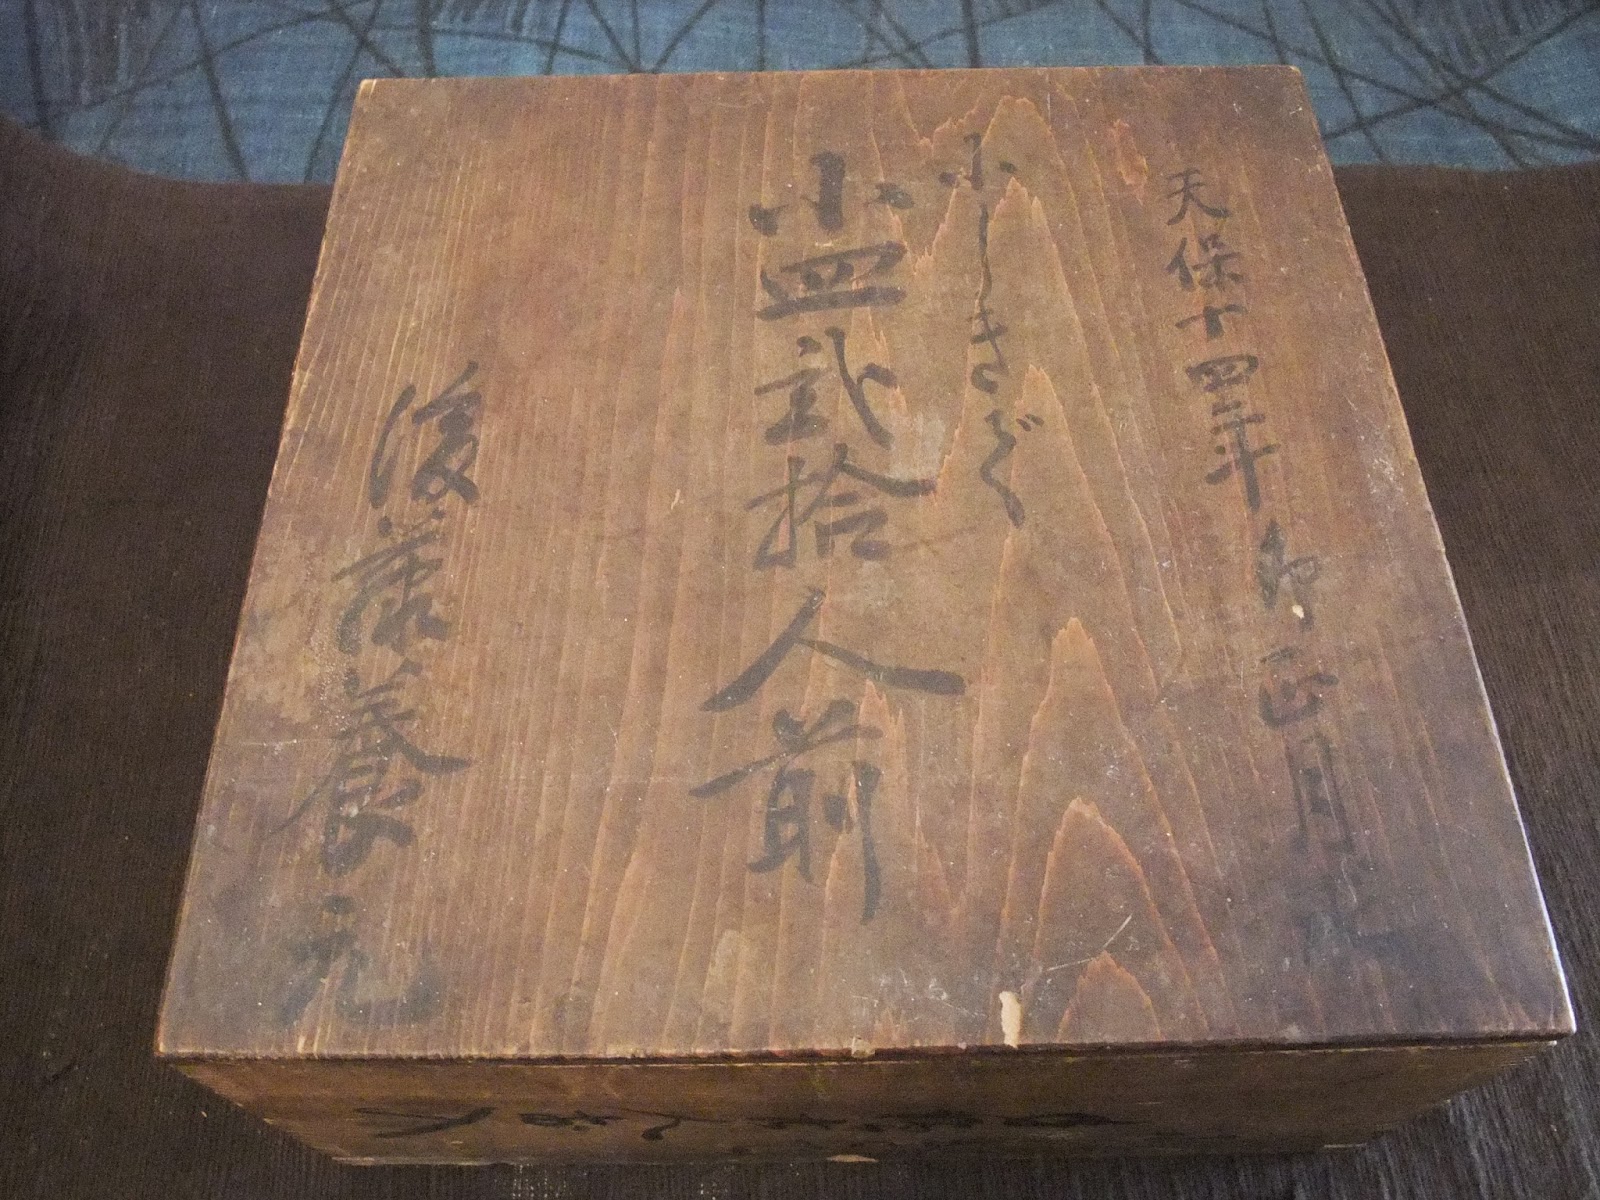 天保十四年卯正月求
小しきざく
小皿弐拾人前
後藤養元